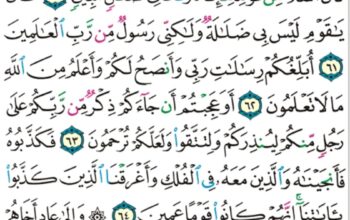 يَـٰقَوْمِ لَيْسَ بِى ضَلَـٰلَةٌ وَلَـٰكِنِّى رَسُولٌ مِّن رَّبِّ ٱلْعَـٰلَمِينَ
٦١ أُبَلِّغُكُمْ رِسَـٰلَـٰتِ رَبِّى وَأَنصَحُ لَكُمْ وَأَعْلَمُ مِنَ ٱللَّهِ
مَا لَا تَعْلَمُونَ ٦٢ أَوَعَجِبْتُمْ أَن جَآءَكُمْ ذِكْرٌ مِّن رَّبِّكُمْ عَلَىٰ
رَجُلٍ مِّنكُمْ لِيُنذِرَكُمْ وَلِتَتَّقُوا۟ وَلَعَلَّكُمْ تُرْحَمُونَ ٦٣ فَكَذَّبُوهُ
فَأَنجَيْنَـٰهُ وَٱلَّذِينَ مَعَهُۥ فِى ٱلْفُلْكِ وَأَغْرَقْنَا ٱلَّذِينَ كَذَّبُوا۟
بِـَٔايَـٰتِنَآ إِنَّهُمْ كَانُوا۟ قَوْمًا عَمِينَ ٦٤ وَإِلَىٰ عَادٍ أَخَاهُمْ